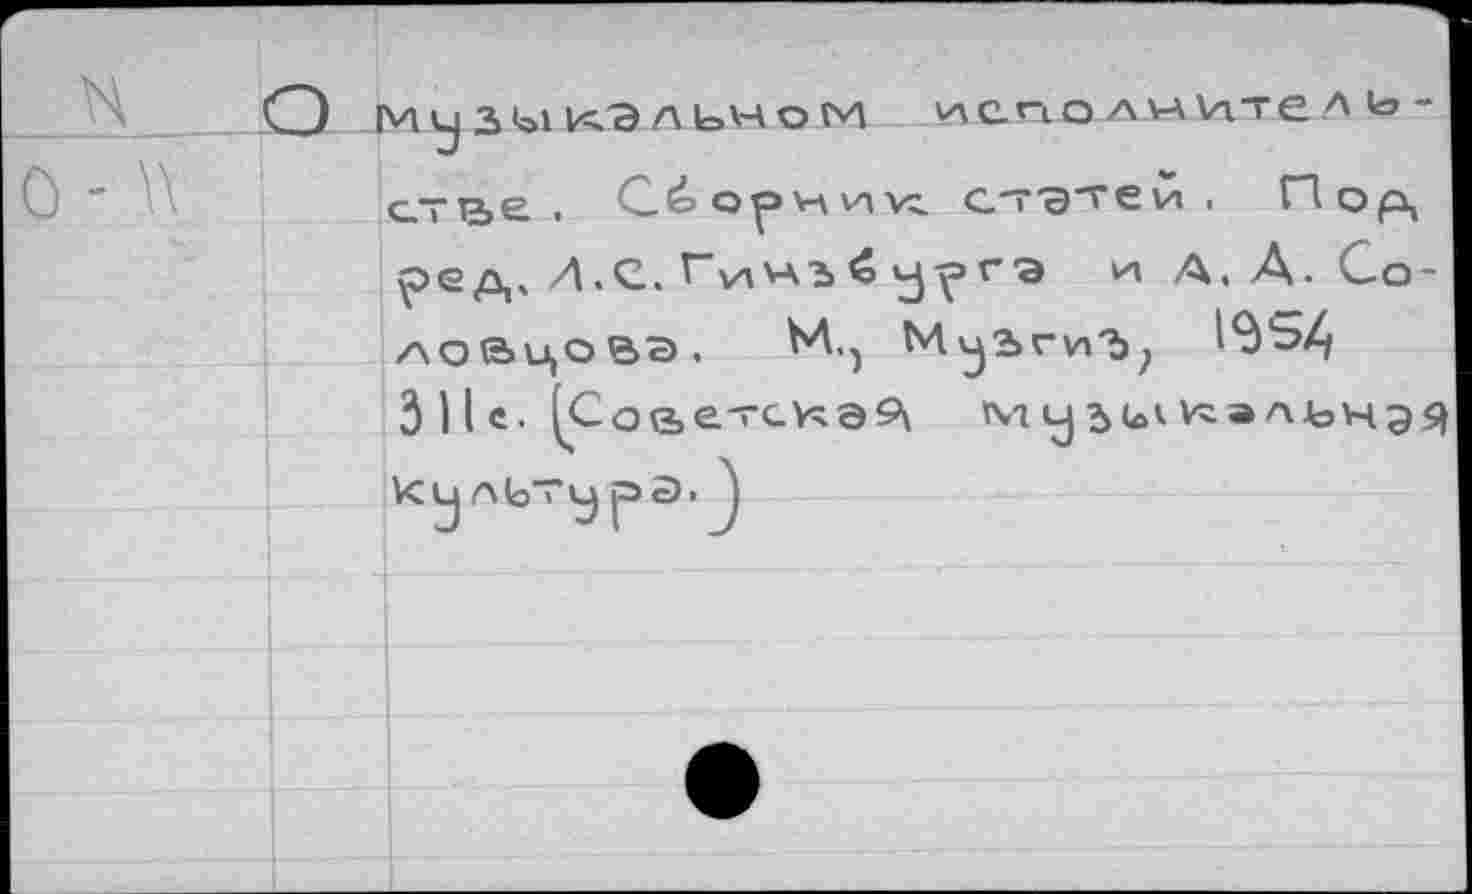 N О музыкальном исполнитель-
О - 11 стве. Сборник статей. Под
ред. Л.С. Гинзбурга и А. А. Со-
ловцова. М., Музгиз, 1954
311с. (Советская музыкальная
культура.)